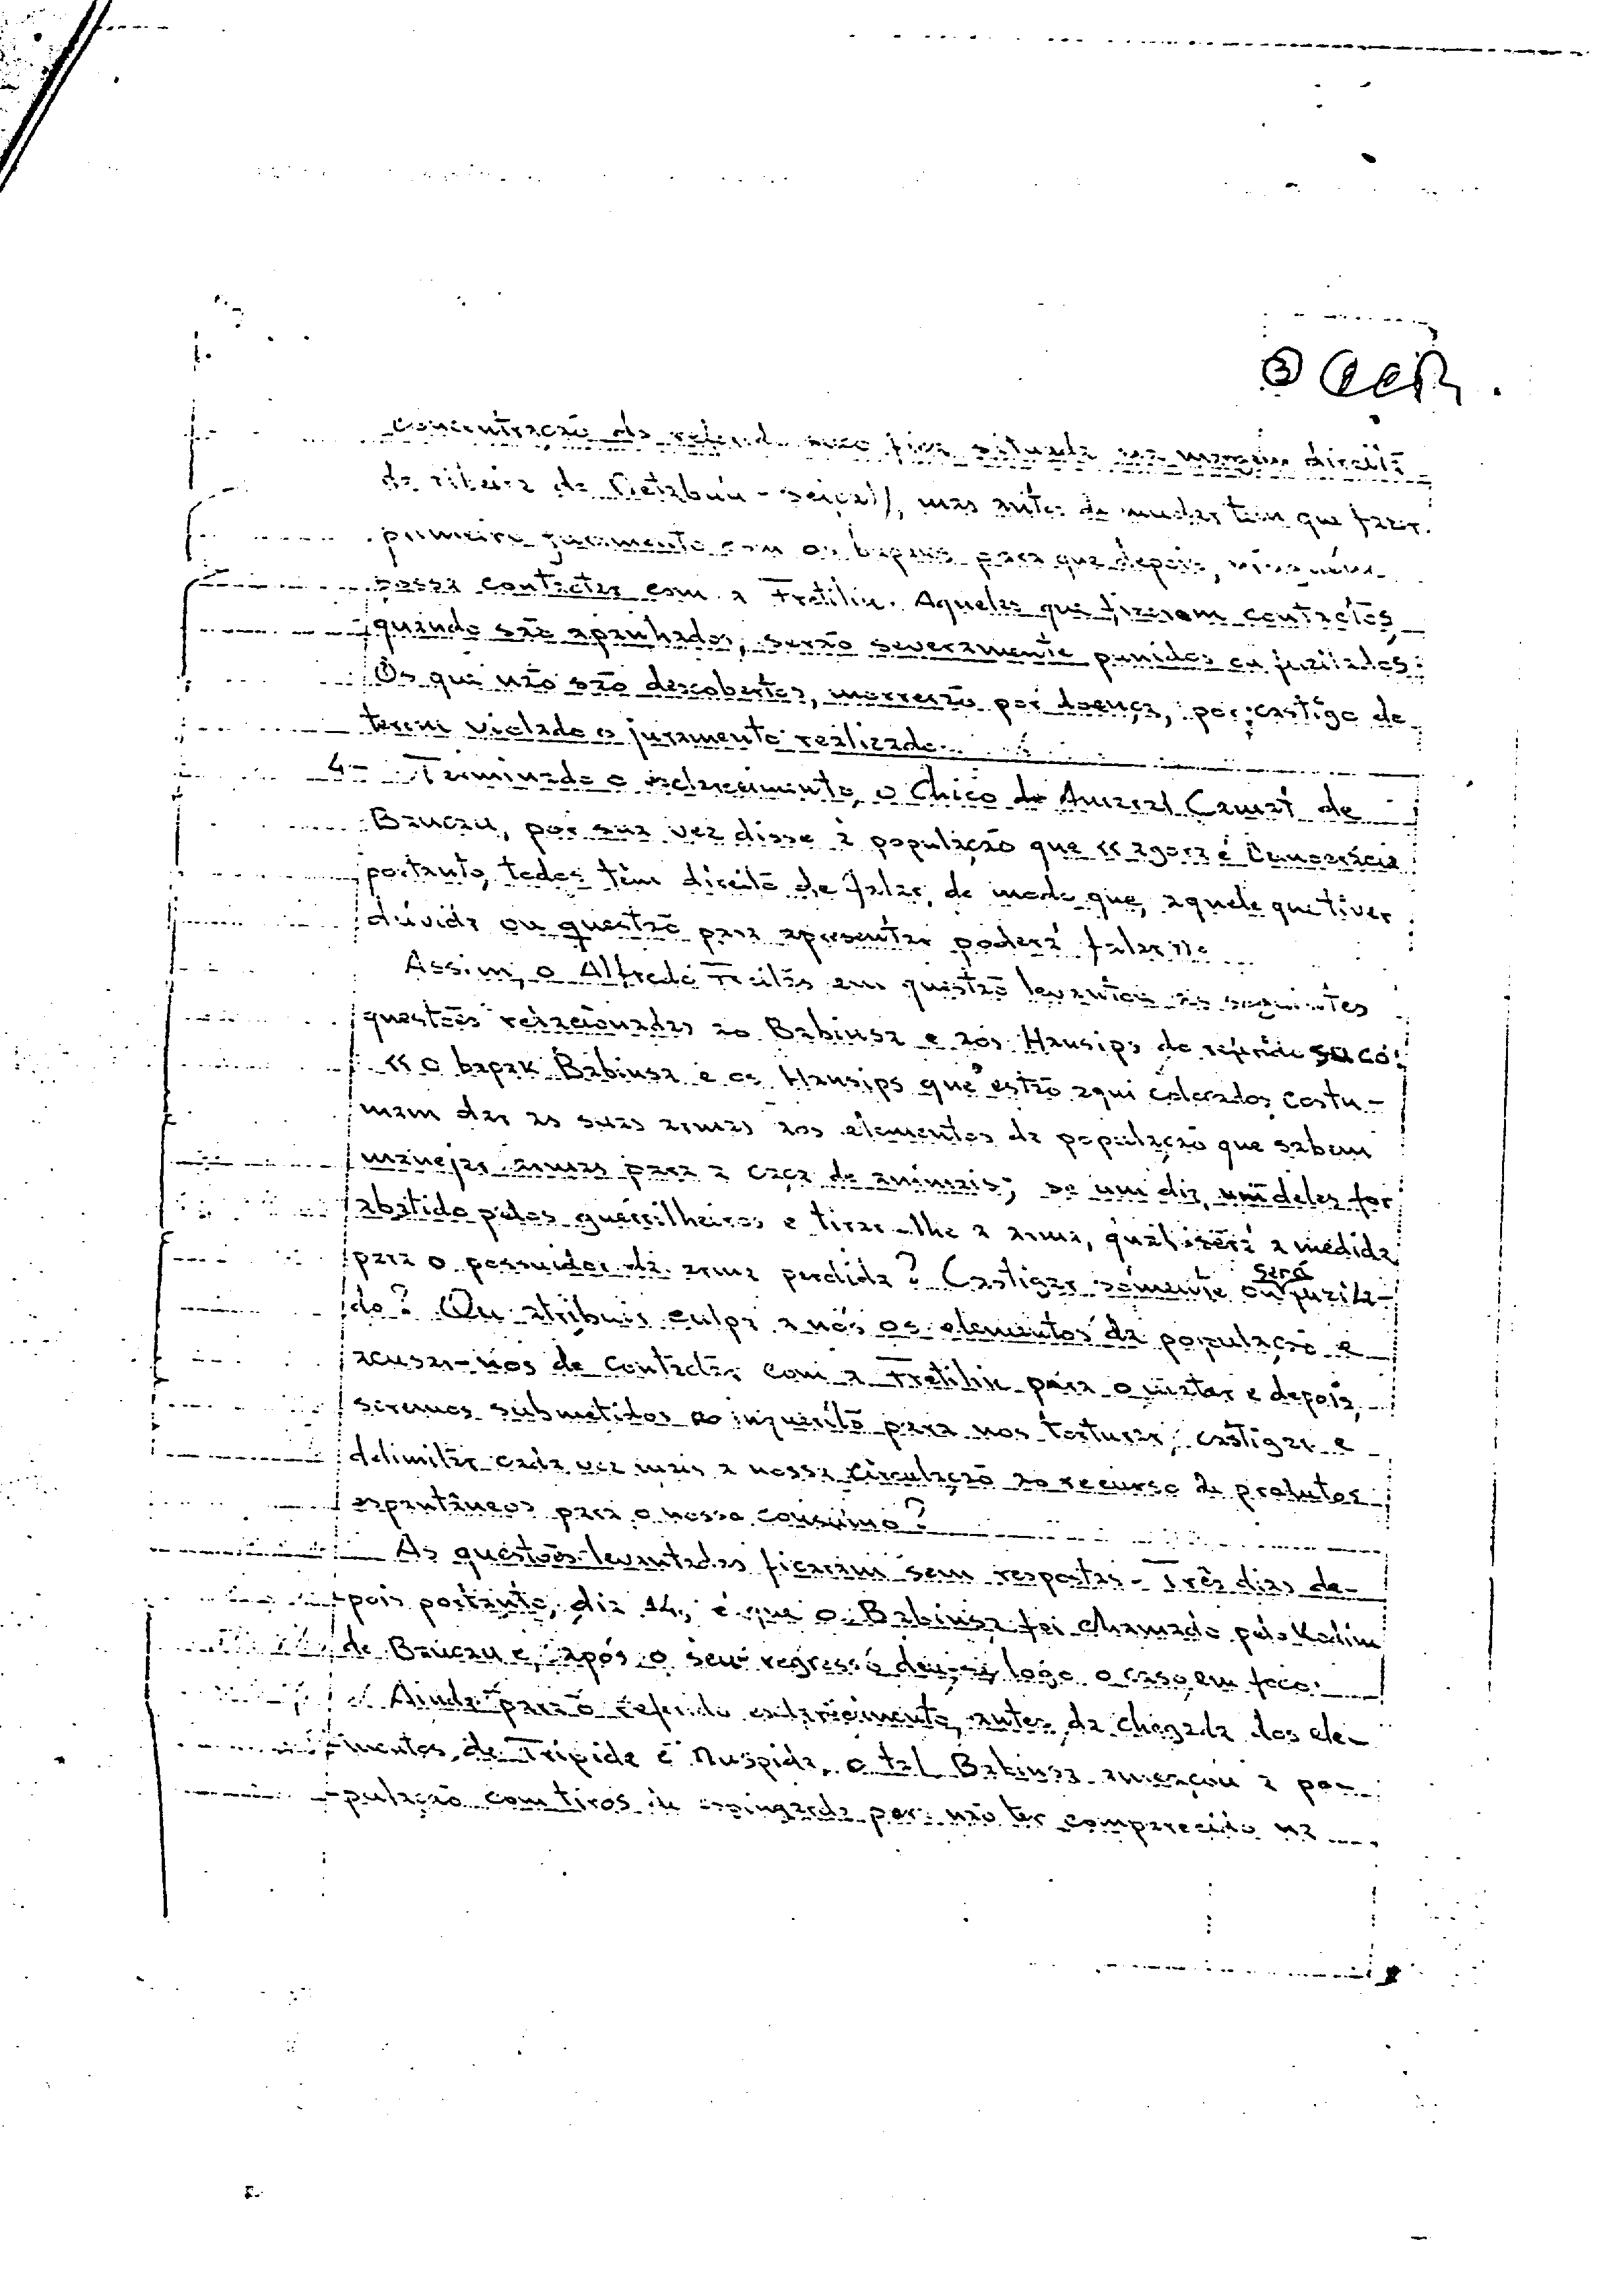 ③
concentração do referido suco fica situada na margem direita
da ribeira de - Seiçal), mas antes de mudar tem que fazer
primeiro juramento com os bapaks para que depois, ninguém
possa contactar com a Fretilin. Aqueles que fizerem contactos,
quando são apanhados, serão severamente punidos ou fuzilados.
Os que não são descobertos, morrerão por doença, por castigo de
terem violado o juramento realizado.
4- Terminado o esclarecimento, o Chico do Amaral Camat de
Baucau, por sua vez disse à população que «agora é Democracia
portanto, todos têm direito de falar, de modo que, aquele que tiver
dúvida ou questão para apresentar poderá falar».
Assim, o Alfredo Freitas em questão levantou as seguintes
questões relacionadas ao Babinsa e aos Hansips do referido suco:
«O bapak Babinsa e os Hansips que estão aqui colocados, costu-
mam dar as suas armas aos elementos da população que sabem
manejar armas para a caça de animais; se um dia, um deles for
abatido pelos guerrilheiros e tirar-lhe a arma, qual será a medida
para o possuidor da arma perdida? Castigar sómente ou será fuzila-
do? Ou atribuir culpa a nós os elementos da população e
acusar-nos de contactar com a Fretilin para o matar e depois,
seremos submetidos ao inquérito para nos torturar, castigar e
delimitar cada vez mais a nossa circulação ao recurso de produtos
espontâneos para o nosso consumo?
As questões levantadas ficaram sem respostas. Três dias de-
pois portanto, dia 14, é que o Babinsa foi chamado pelo Kodim
de Baucau e, após o seu regresso deu-se logo o caso em foco.
Ainda para o referido esclarecimento, antes da chegada dos ele-
mentos de Tripida e Muspida, o tal Babinsa ameaçou a po-
pulação com tiros de espingarda por não ter comparecido na